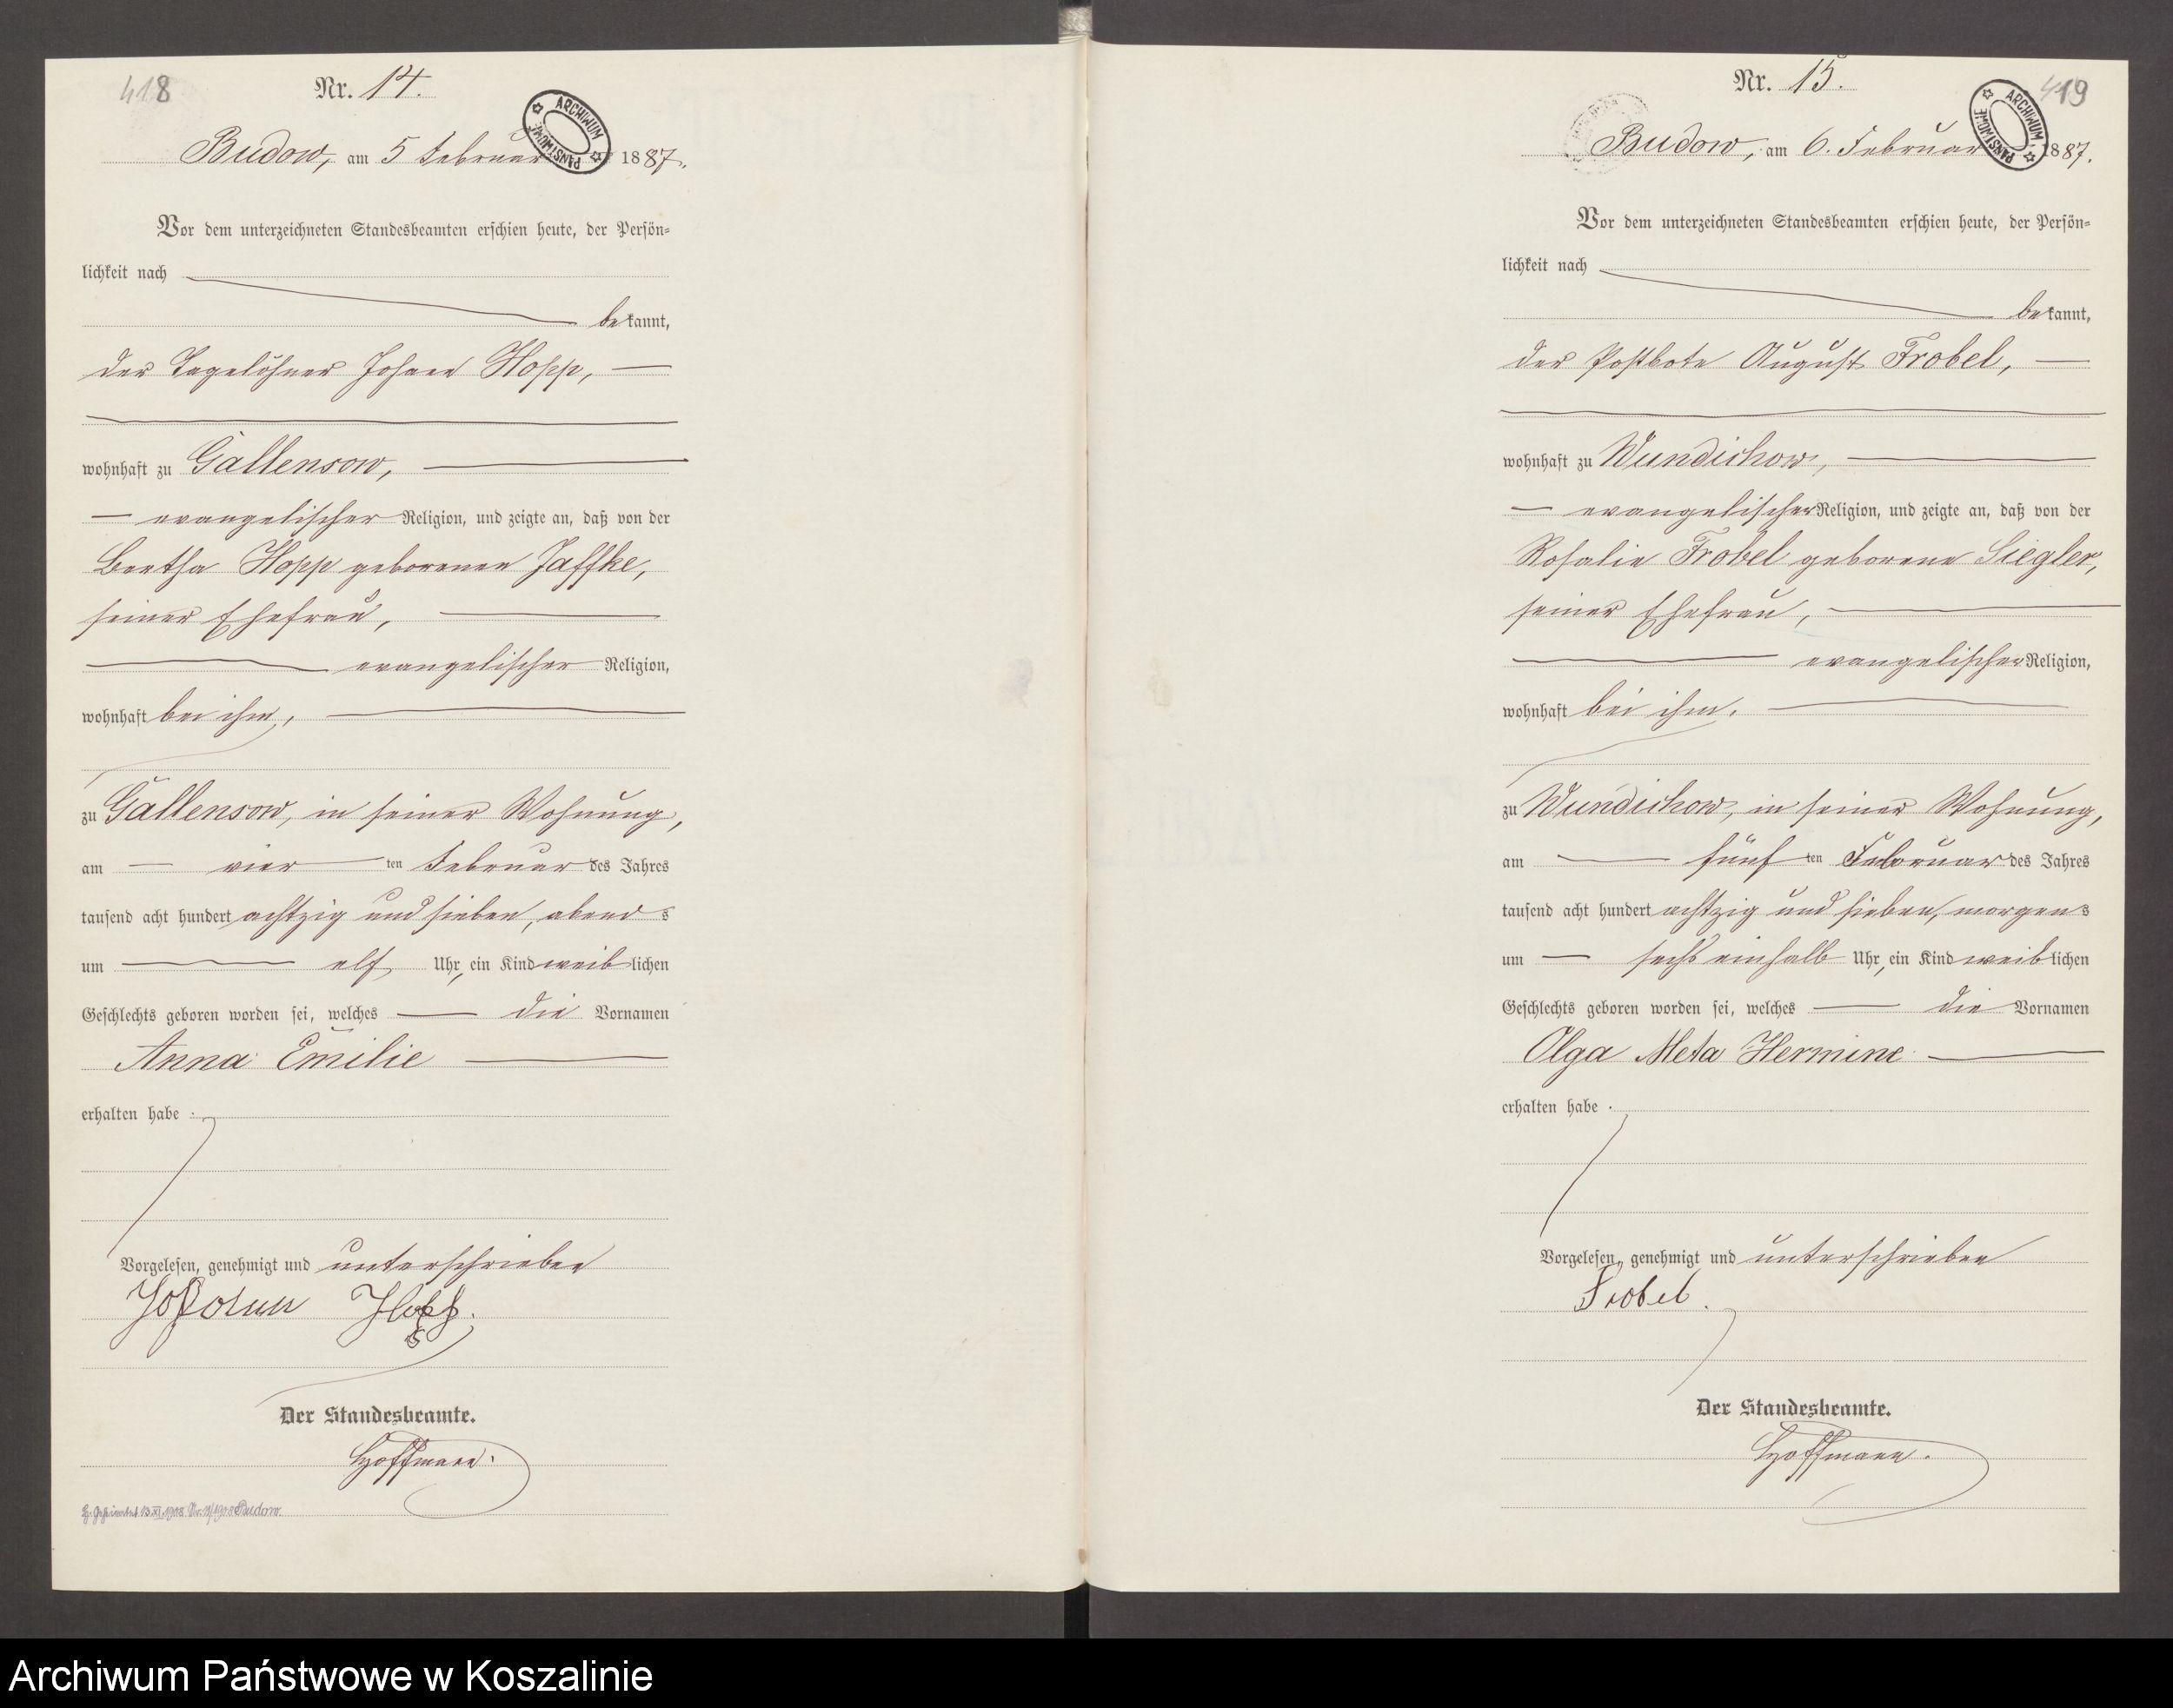 418
Nr. 14.
ARCHIWUM PAŃSTWOWE
Budow, am 5 Februar 1887.
Vor dem unterzeichneten Standesbeamten erschien heute, der Persön-
lichkeit nach
bekannt,
der Tagelöhner Johann Hopp,
wohnhaft zu Gallensow,
evangelischer Religion, und zeigte an, daß von der
Bertha Hopp geborenen Jaffke,
seiner Ehefrau,
evangelischer Religion,
wohnhaft bei ihm,
zu Gallensow, in seiner Wohnung,
am vier ten Februar des Jahres
tausend acht hundert achtzig und sieben, abends
um elf Uhr, ein Kind weiblichen
Geschlechts geboren worden sei, welches die Vornamen
Anna Emilie
erhalten habe.
Vorgelesen, genehmigt und unterschrieben
Johann Hopp.
Der Standesbeamte.
Hoffmann.
Budow.
419
Nr. 15.
ARCHIWUM PAŃSTWOWE
Budow, am 6. Februar 1887.
Vor dem unterzeichneten Standesbeamten erschien heute, der Persön-
lichkeit nach
bekannt,
der Postbote August Frobel,
wohnhaft zu Wundichow,
evangelischer Religion, und zeigte an, daß von der
Rosalie Frobel geborene Siegler,
seiner Ehefrau,
evangelischer Religion,
wohnhaft bei ihm,
zu Wundichow, in seiner Wohnung,
am fünf ten Februar des Jahres
tausend acht hundert achtzig und sieben, morgens
um sechs einhalb Uhr, ein Kind weiblichen
Geschlechts geboren worden sei, welches die Vornamen
Olga Meta Hermine
erhalten habe.
Vorgelesen, genehmigt und unterschrieben
Frobel.
Der Standesbeamte.
Hoffmann.
Archiwum Państwowe w Koszalinie